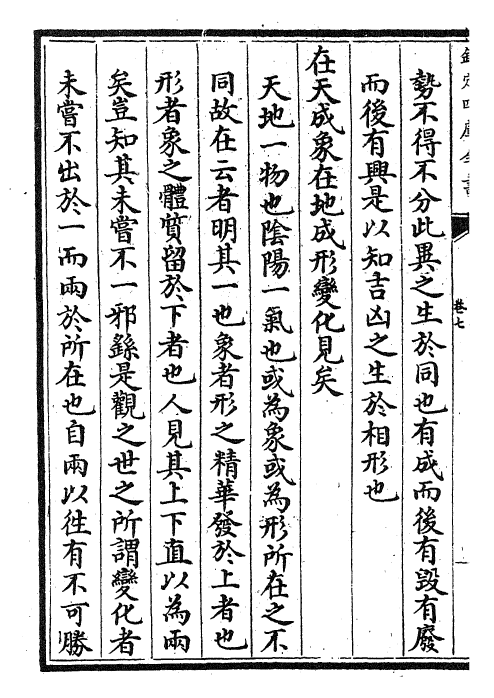 欽定四庫全書
卷七
勢不得不分此異之生於同也有成而後有毀有廢
而後有興是以知吉凶之生於相形也
在天成象在地成形變化見矣
天地一物也陰陽一氣也或為象或為形所在之不
同故在云者明其一也象者形之精華發於上者也
形者象之體質留於下者也人見其上下直以為兩
矣豈知其未嘗不一邪繇是觀之世之所謂變化者
未嘗不出於一而兩於所在也自兩以往有不可勝